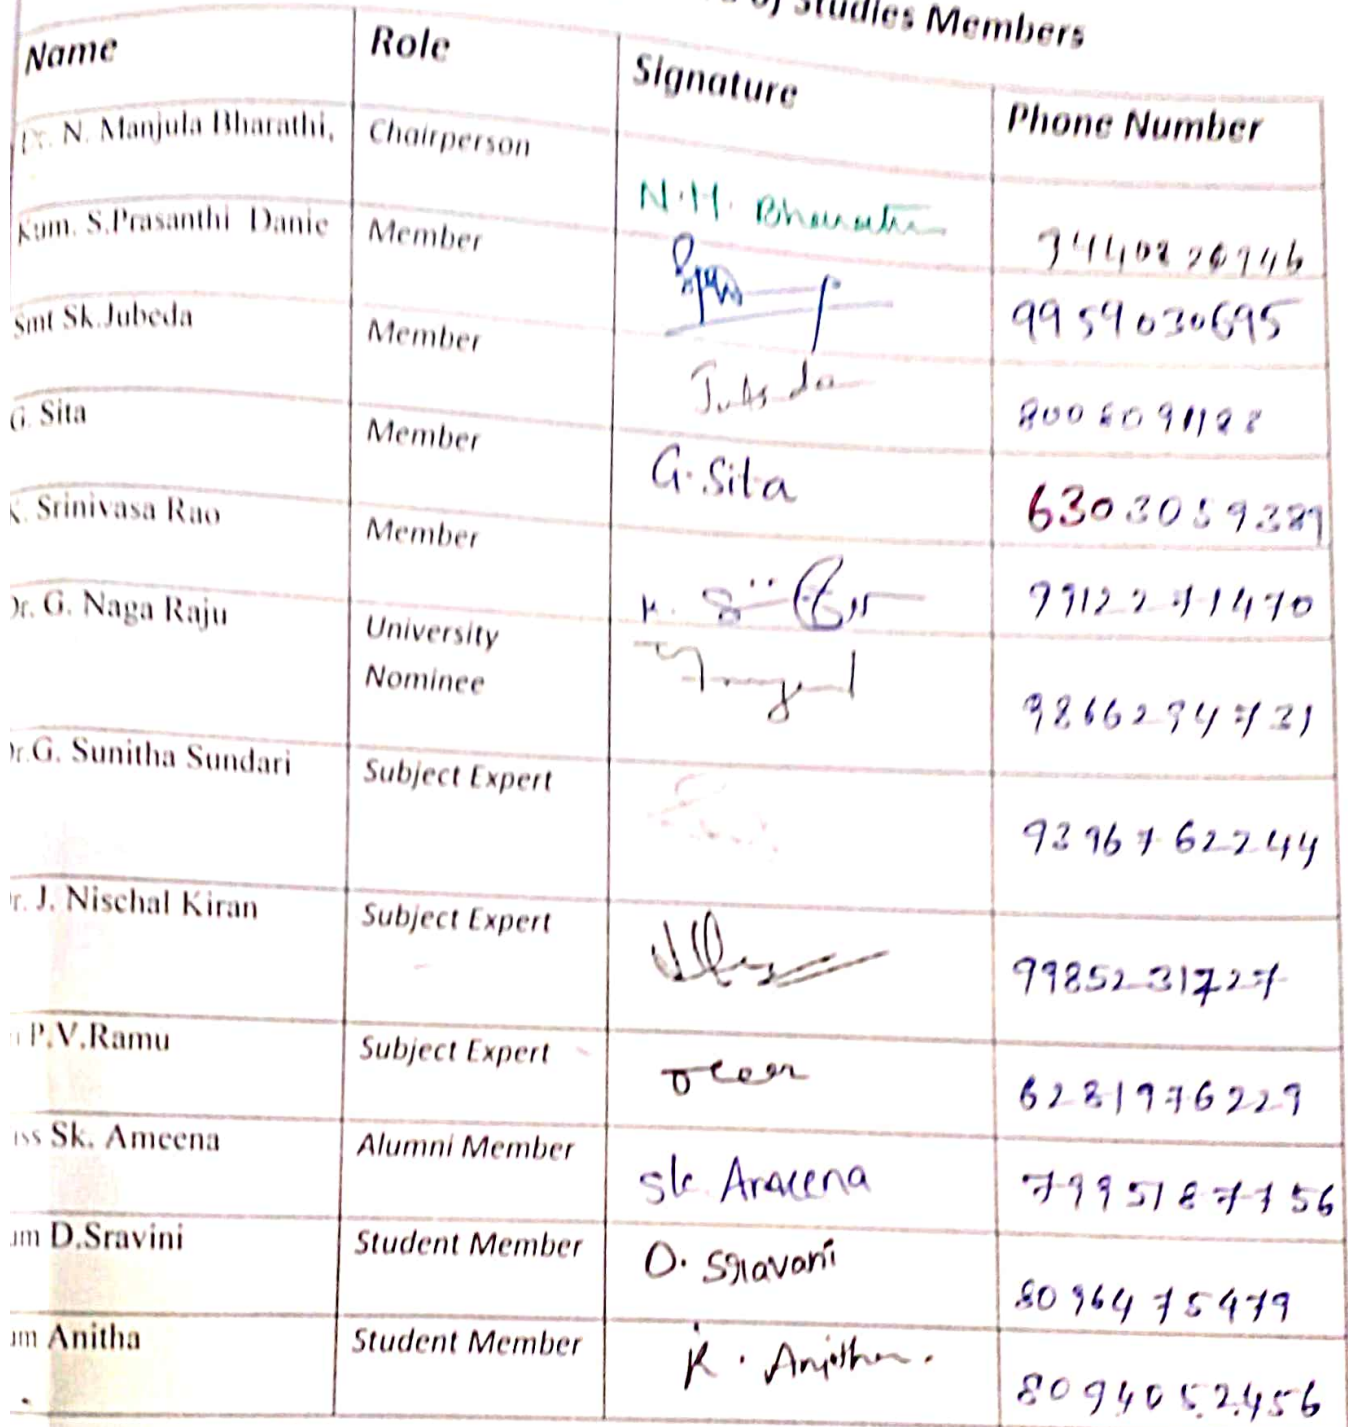 of Studies Members
Name Role Signature Phone Number
Dr. N. Manjula Bharathi, Chairperson N.M. Bharathi
Kum. S.Prasanthi Danie Member 9959030695
Smt Sk.Jubeda Member Jubeda
G. Sita Member G. Sita 6303059389
K. Srinivasa Rao Member 9912271470
Dr. G. Naga Raju University
Nominee 9866294731
Dr.G. Sunitha Sundari Subject Expert 9396762244
Dr. J. Nischal Kiran Subject Expert 9985231727
P.V.Ramu Subject Expert 6281976229
iss Sk. Ameena Alumni Member Sk. Ameena 7995187756
um D.Sravini Student Member D. Sravani 8096475479
um Anitha Student Member K. Anitha. 8094052456